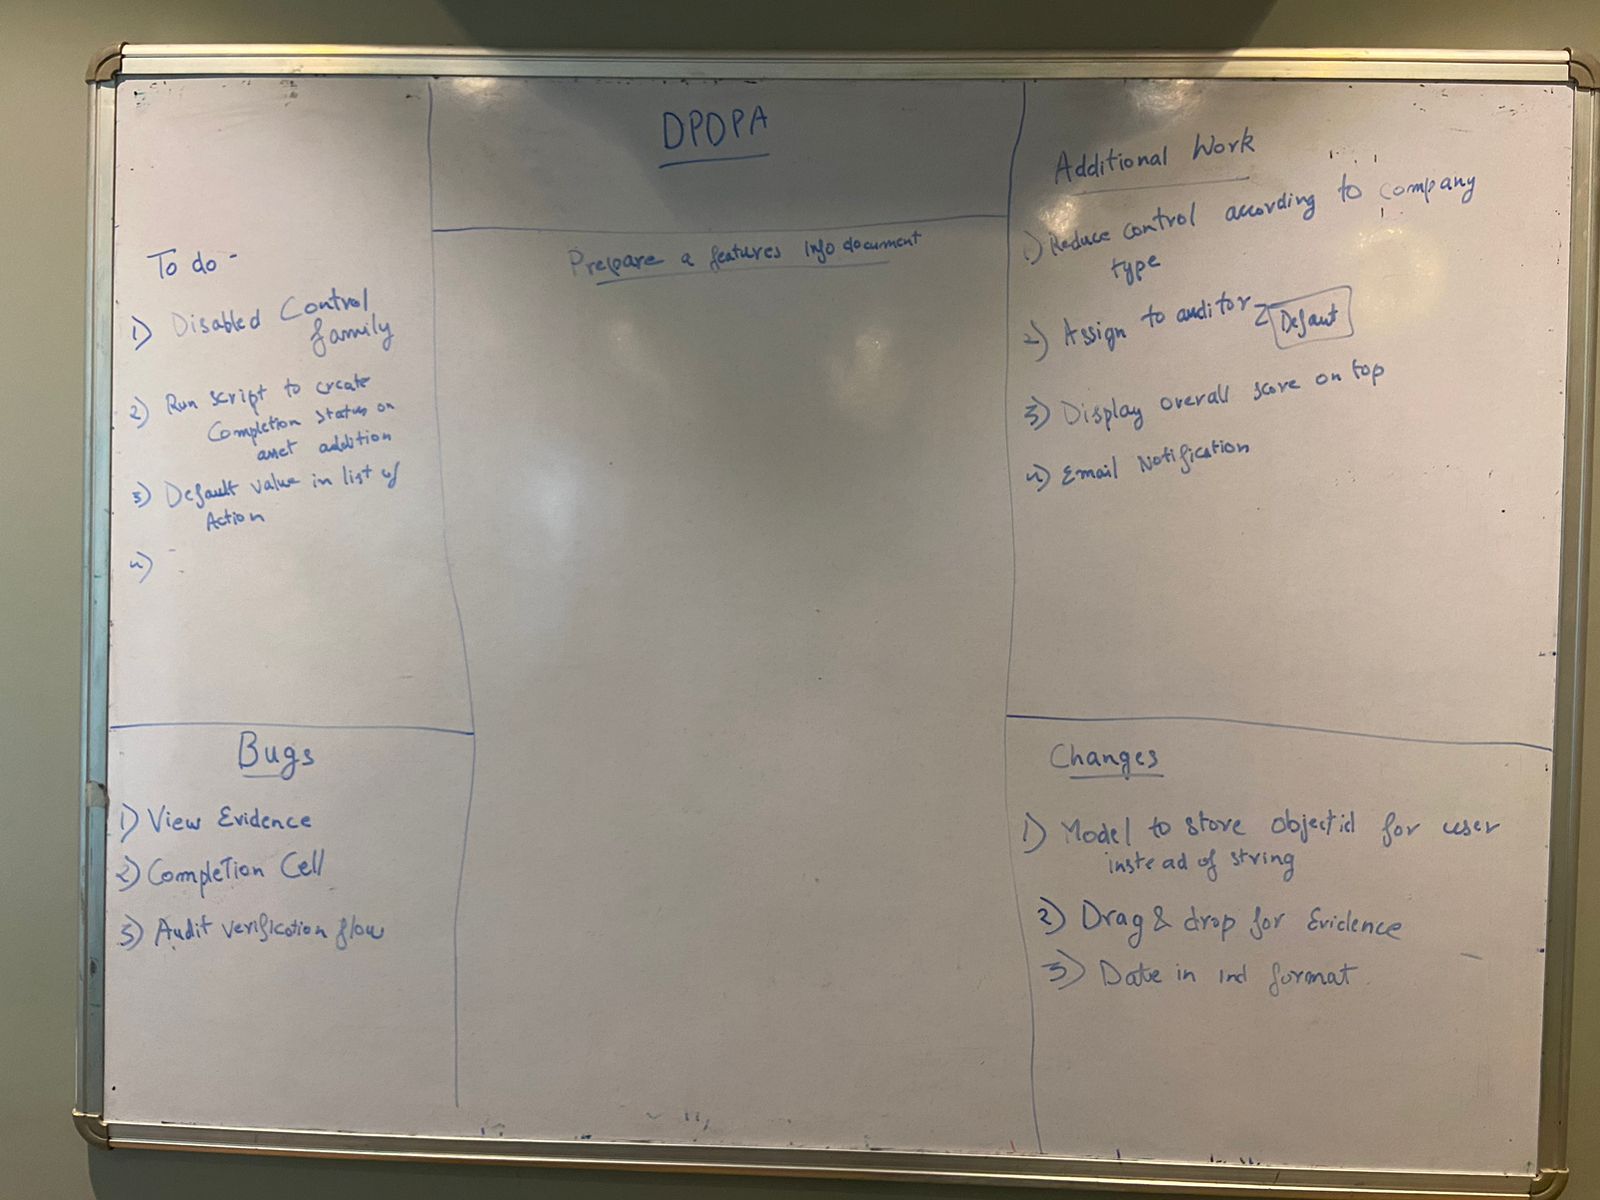 DPDPA
Prepare a features info document
To do -
1) Disabled Control
family
2) Run script to create
Completion status on
asset addition
3) Default value in list of
Action
4)
Bugs
1) View Evidence
2) Completion Cell
3) Audit verification flow
Additional Work
1) Reduce control according to company
type
2) Assign to auditor Defaut
3) Display overall score on top
4) Email Notification
Changes
1) Model to store objectid for user
instead of string
2) Drag & drop for Evidence
3) Date in ind format